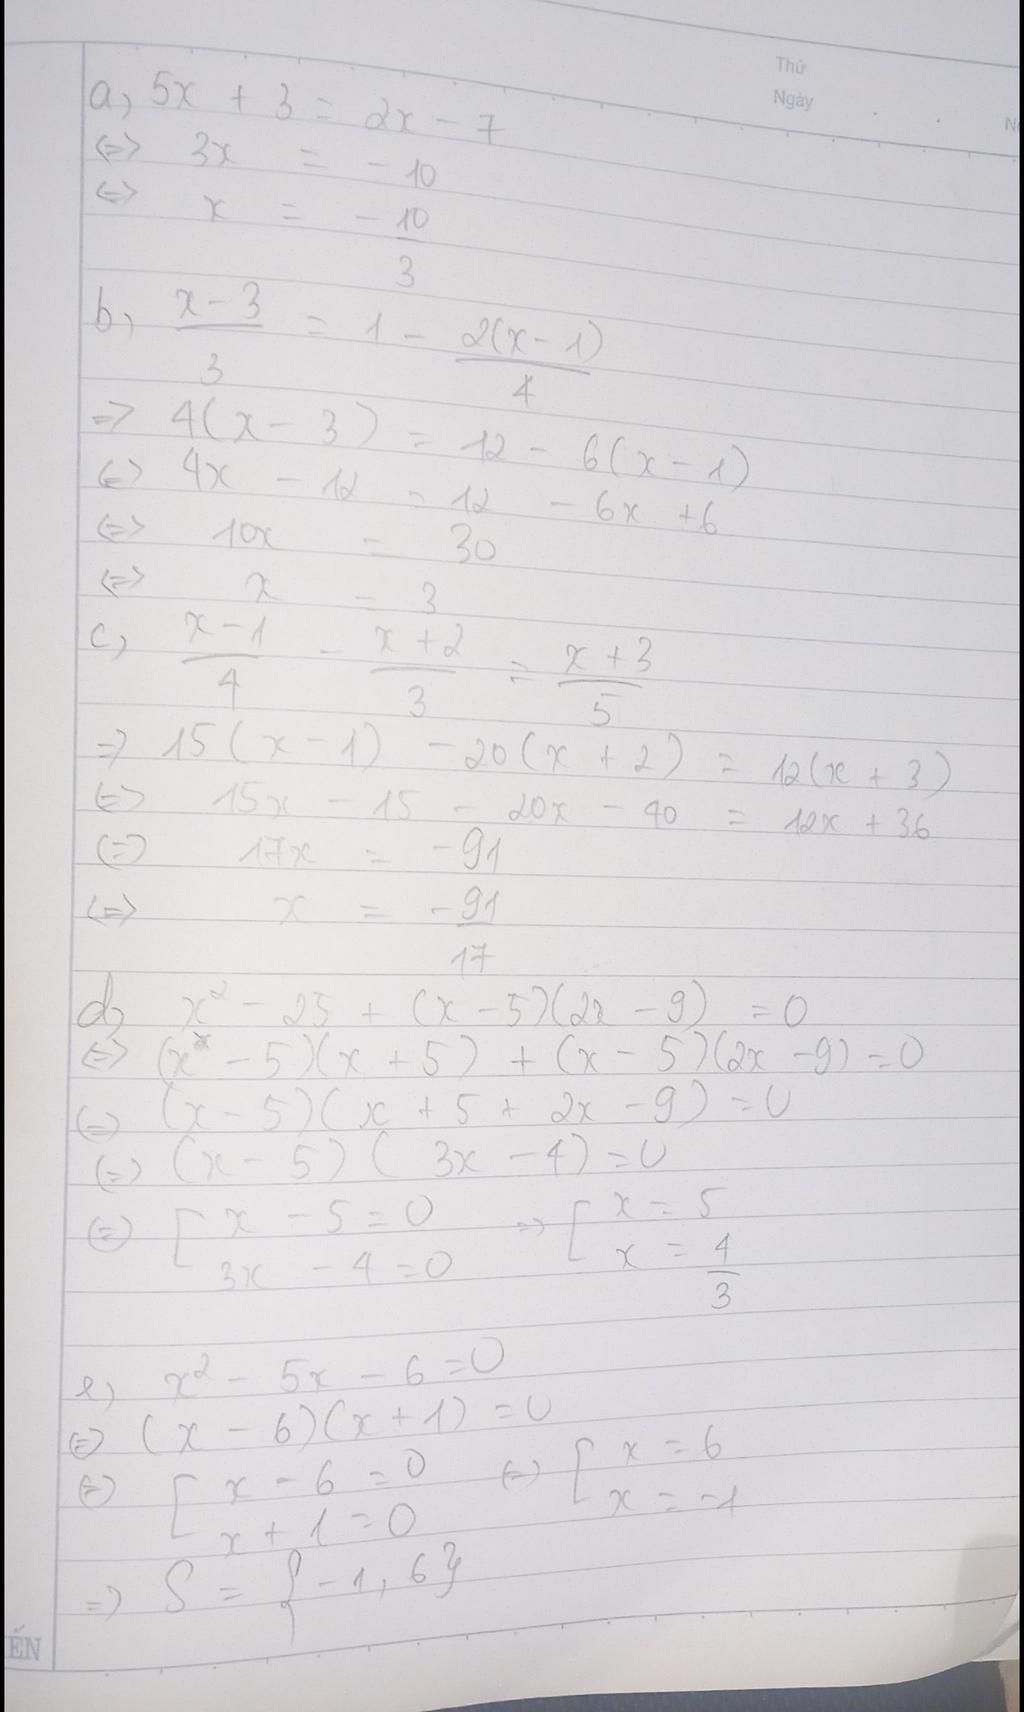 Thứ
Ngày
a, 5x + 3 = 2x - 7
<=> 3x = -10
<=> x = -10/3
b, (x - 3)/3 = 1 - 2(x - 1)/4
=> 4(x - 3) = 12 - 6(x - 1)
<=> 4x - 12 = 12 - 6x + 6
<=> 10x = 30
<=> x = 3
c, (x - 1)/4 - (x + 2)/3 = (x + 3)/5
=> 15(x - 1) - 20(x + 2) = 12(x + 3)
<=> 15x - 15 - 20x - 40 = 12x + 36
<=> 17x = -91
<=> x = -91/17
d, x² - 25 + (x - 5)(2x - 9) = 0
<=> (x - 5)(x + 5) + (x - 5)(2x - 9) = 0
<=> (x - 5)(x + 5 + 2x - 9) = 0
<=> (x - 5)(3x - 4) = 0
<=> [ x - 5 = 0 => [ x = 5
3x - 4 = 0 x = 4/3
e, x² - 5x - 6 = 0
<=> (x - 6)(x + 1) = 0
<=> [ x - 6 = 0 <=> [ x = 6
x + 1 = 0 x = -1
=> S = {-1, 6}
ẾN